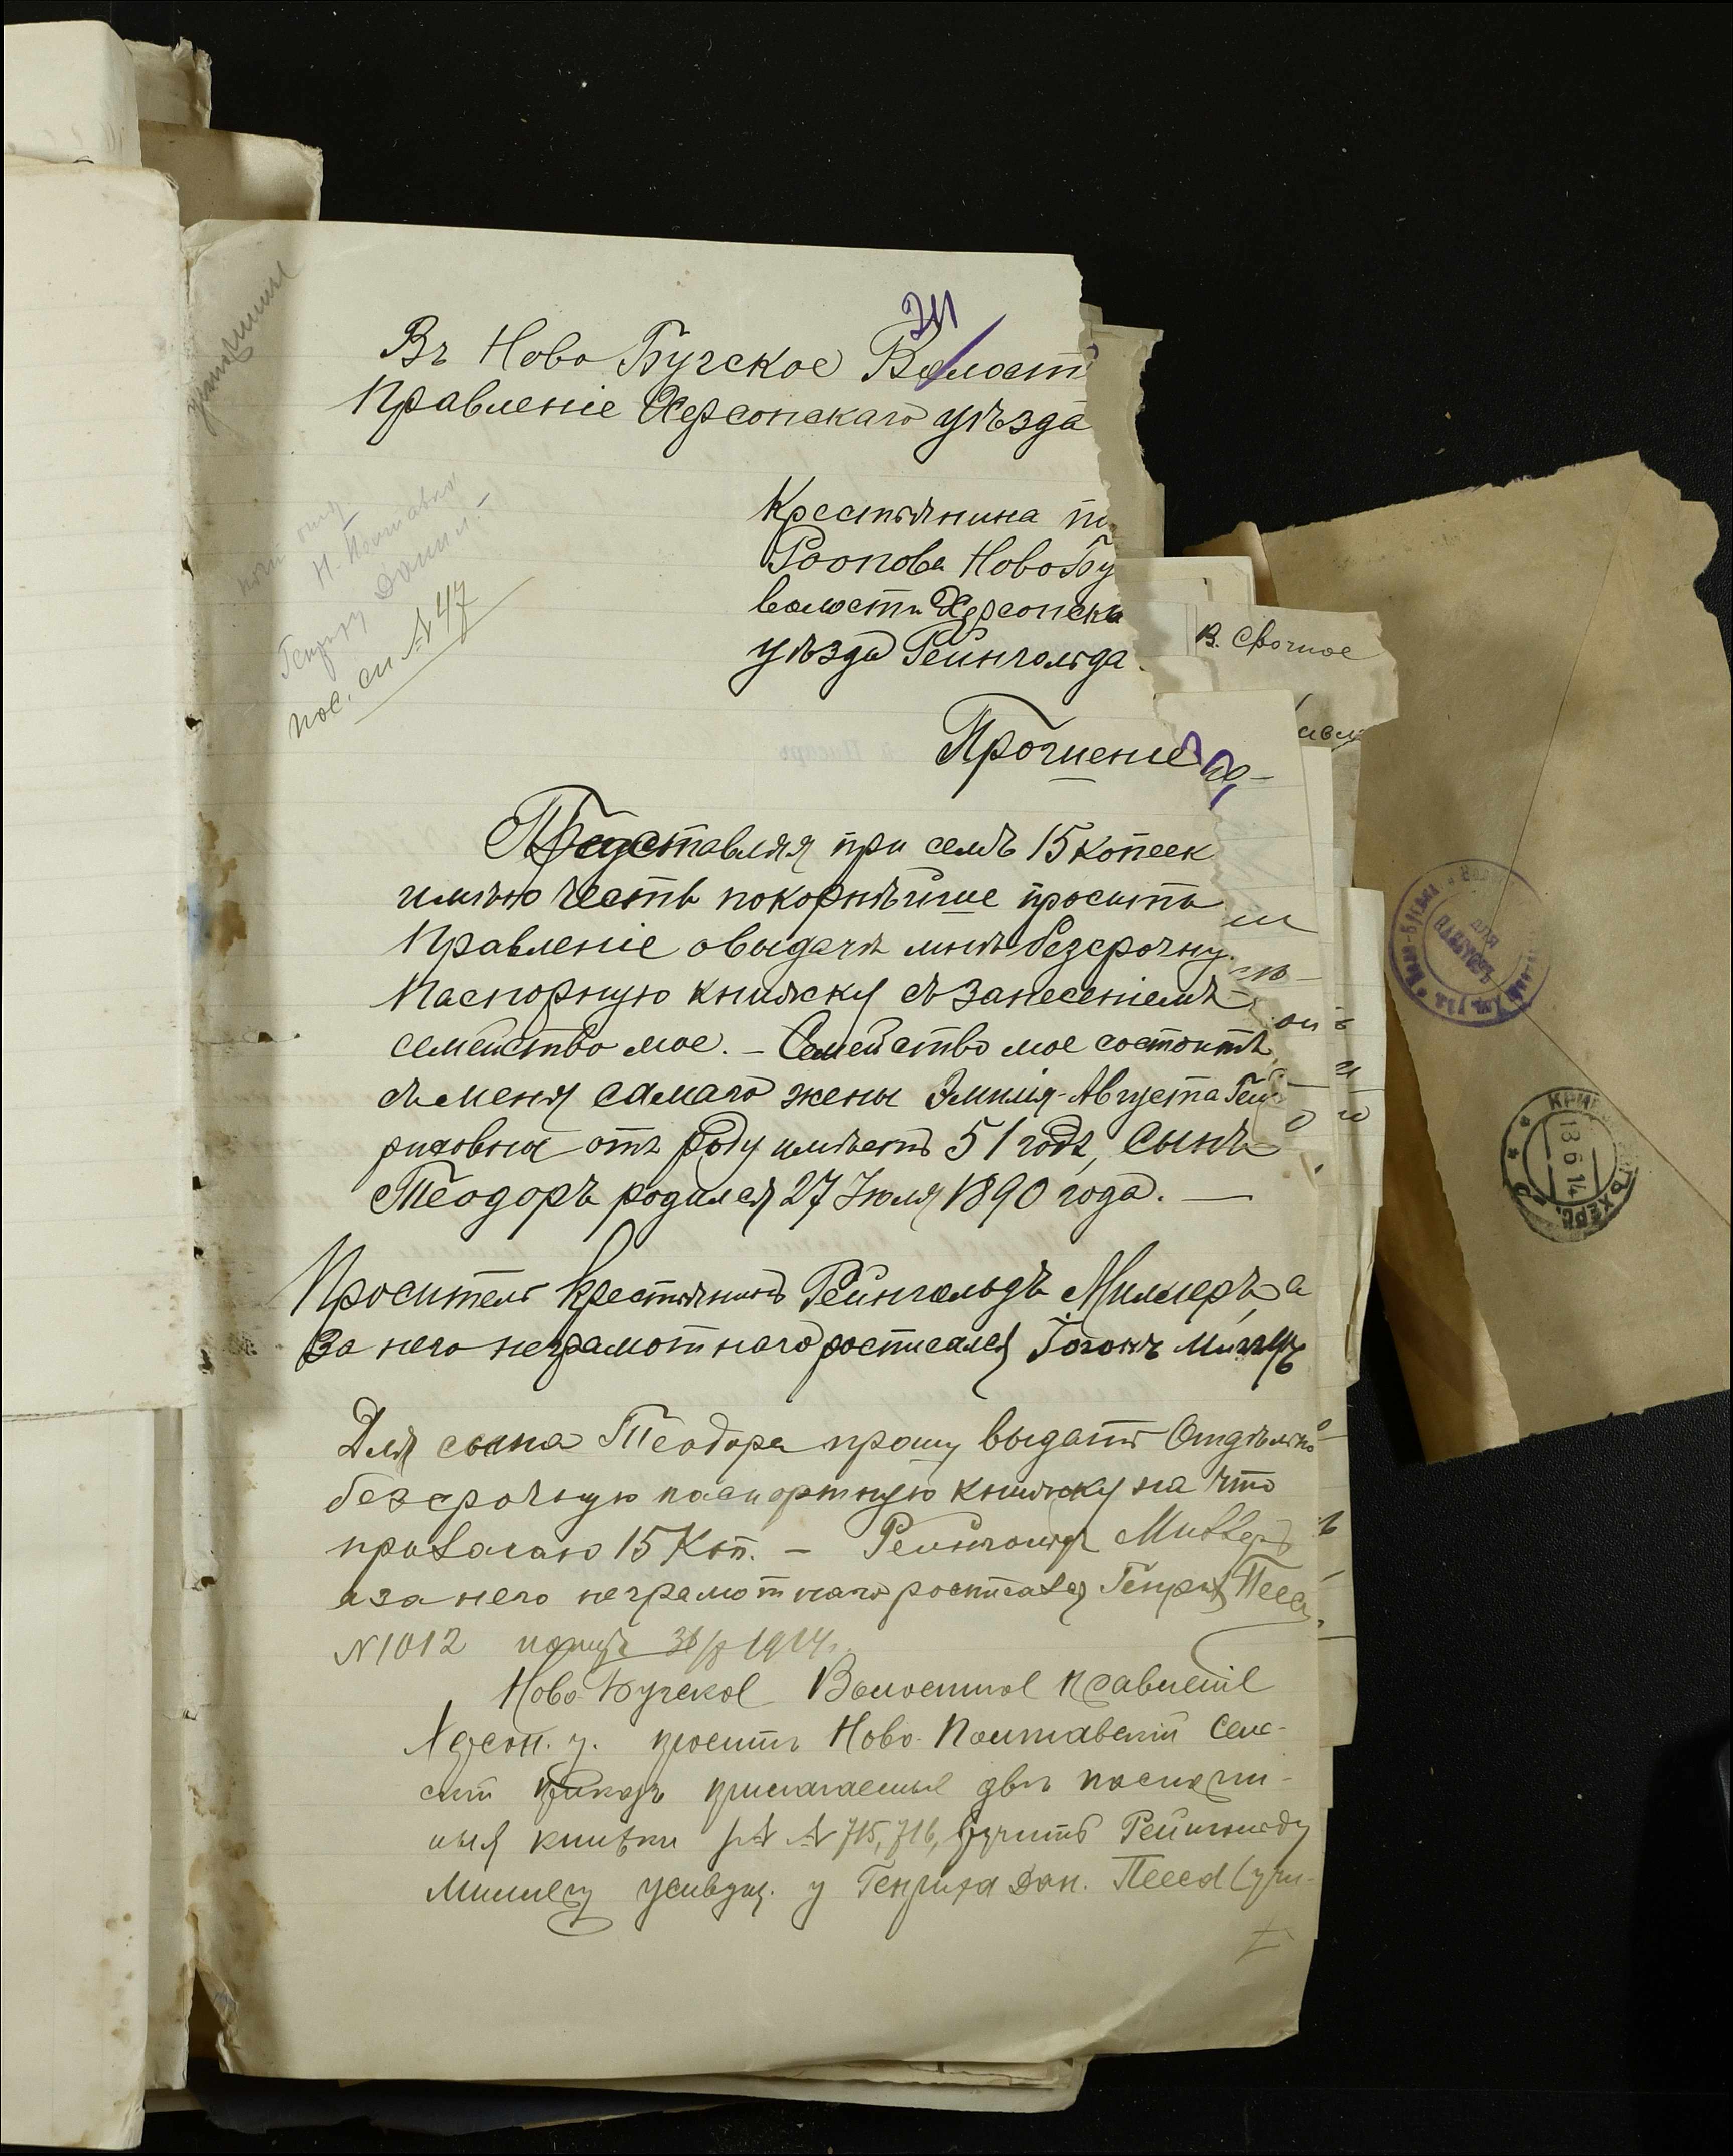 Въ Ново Бугское Волост
Правленіе Херсонскаго уѣзда
Крестьянина
Роопова Ново Бу
волости Херсонска
уѣзда Рейнгольда
Прошеніе
Представляя при семъ 15 копеек
имѣю честь покорнѣйше просить
Правленіе о выдачѣ мнѣ безсрочну
Паспорную книжску съ занесеніемъ
семейство мое. – Семейство мое состоитъ
съ меня самаго жены Эмилія-Августа Ген
риховна отъ роду имѣетъ 51 годъ, Сынъ
Теодоръ родился 27 Июля 1890 года. —
Проситель Крестьянинъ Рейнгольдъ Миллеръ, а
За него неграмотнаго росписался Іоганъ
Для сына Теодора прошу выдать Отдѣльно
безсрочную паспортную книжку на что
прилагаю 15 Коп. – Рейнгольдъ Миллеръ
а за него неграмотнаго росписался Генрих
N 1012 1914
Ново-Бугское Волостное Правленіе
Херсон. у. проситъ Ново-Полтавскій Сель-
скій приказъ прилагаемые двѣ паспорт-
ныя книжки N N 715, 716, вручить Рейнгольду
Миллеру у Генриха Дан.
Н. Полтавка
Генриху Данил.
пос. сп. N 47
В. Срочное
13 6 14